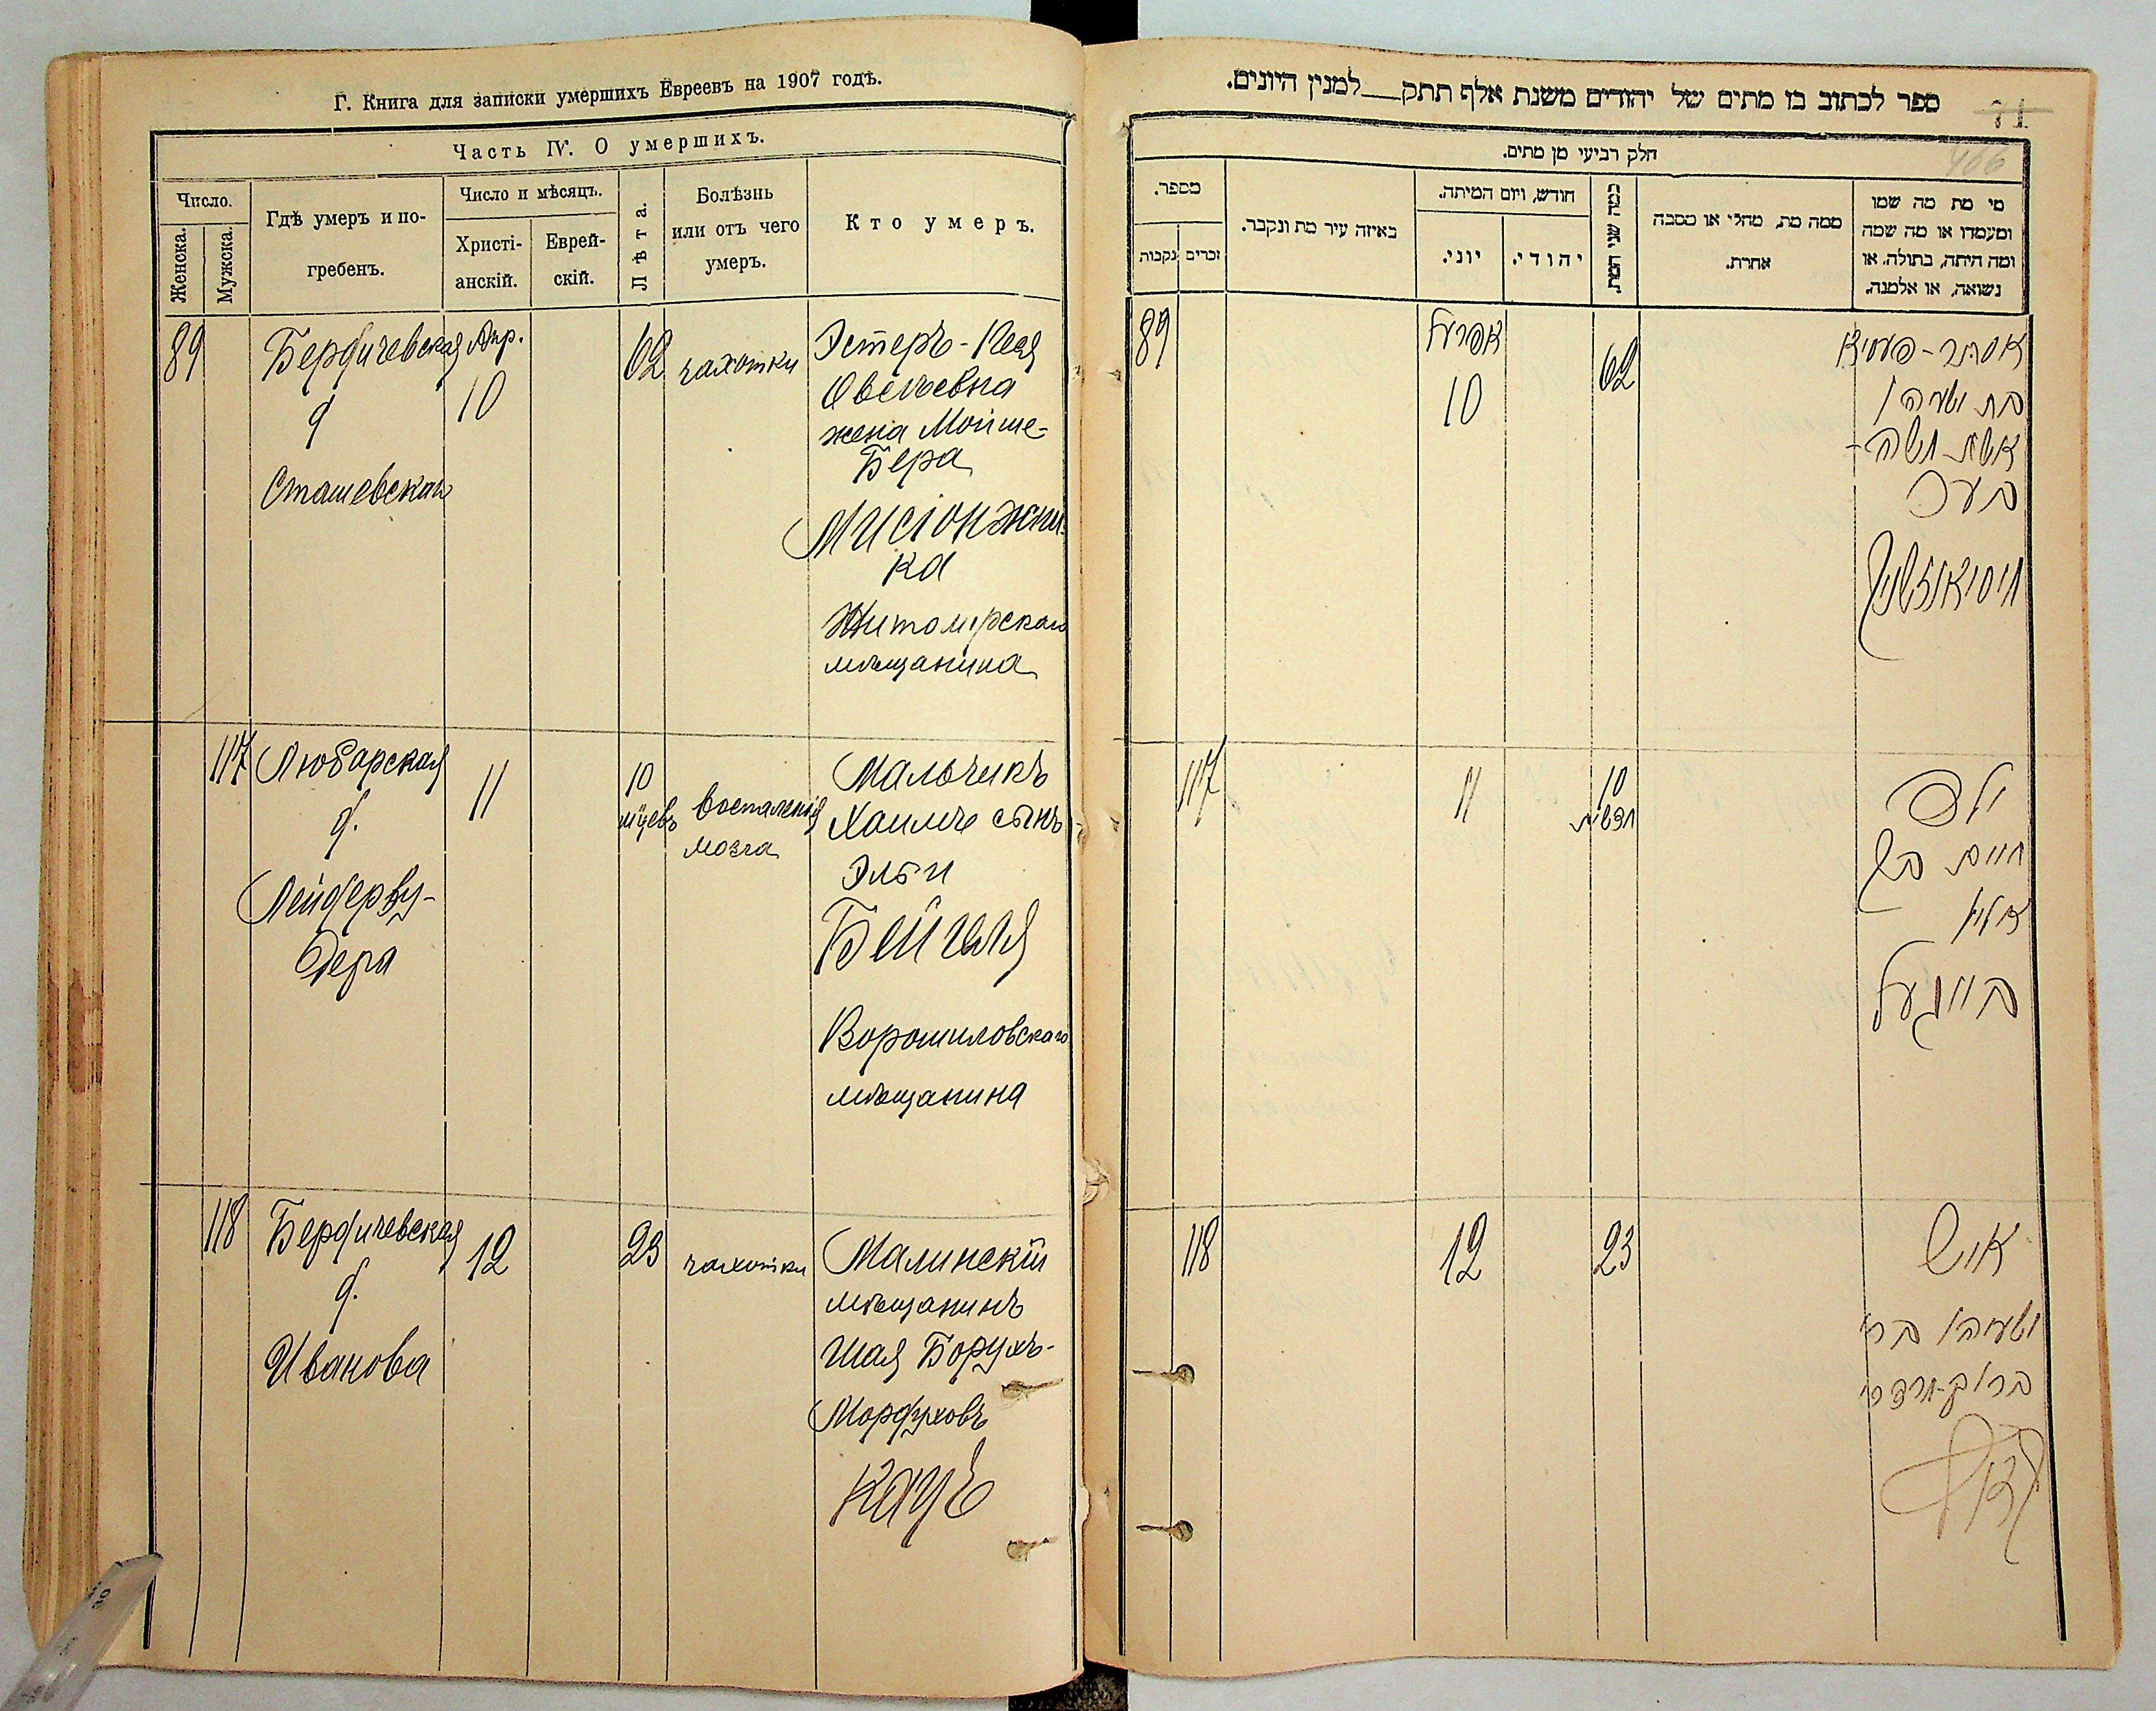 Г. Книга для записки умершихъ Евреевъ на 1907 годъ.
Часть IV. О умершихъ.
Число.
Женска.
Мужска.
Гдѣ умеръ и по-
гребенъ.
Число и мѣсяцъ.
Христі-
анскій.
Еврей-
скій.
Лѣта.
Болѣзнь
или отъ чего
умеръ.
Кто умеръ.
89
Бердичевская
д
Сташевская
Апр.
10
62
чахотки
Эстеръ-Песя
жена Мойше-
Бера
Мисіонжни-
ка
Житомірскаго
мѣщанина
117
Любарская
д.
Лейдерву-
дера
11
10
мѣцевъ
воспаленія
мозга
Мальчикъ
Хаимъ сынъ
Эльи
Бейгеля
Ворошиловскаго
мѣщанина
118
Бердичевская
д.
Иванова
12
23
чахотки
Малинскій
мѣщанинъ
Шая Борухъ-
Мордуховъ
Кацъ
ספר לכתוב בו מתים של יהודים משנת אלף תתק__למנין היונים.
71
466
חלק רביעי מן מתים.
מספר.
זכרים
נקבות
באיזה עיר מת ונקבר.
חודש, ויום המיתה.
יוני.
יהודי.
כמה שני המת.
ממה מת, מחלי או מסבה
אחרת.
מי מת מה שמו
ומעמדו או מה שמה
ומה היתה, בתולה, או
נשואה, או אלמנה.
89
אפריל
10
62
אסתר-פעסיא
בת ישעיהו
אשת משה-
בער
מיסיאנזשניק
117
11
10
חדשים
ילד
חיים בן
אלי
בייגעל
118
12
23
איש
ישעיהו בר׳
ברוך-מרדכי